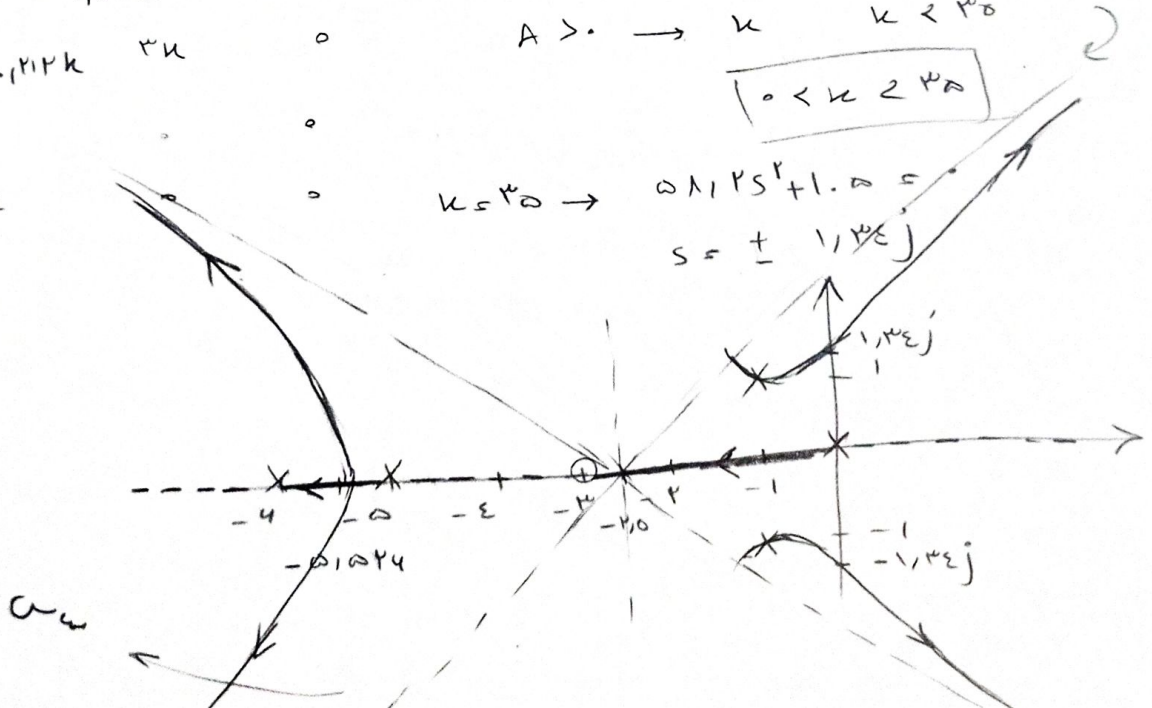 ۰٫۲۱۲k ۳k ۰ A >۰ → k k < ۳۵
۰ < k < ۳۵
k = ۳۵ → ۵۸٫۲s² + ۱۰۵ = ۰
s = ± ۱٫۳٤j
۱٫۳٤j
۱
-۶ -۵ -٤ -۳ -۲٫۵ -۲ -۱
-۵٫۵۲۶
-۱
-۱٫۳٤j